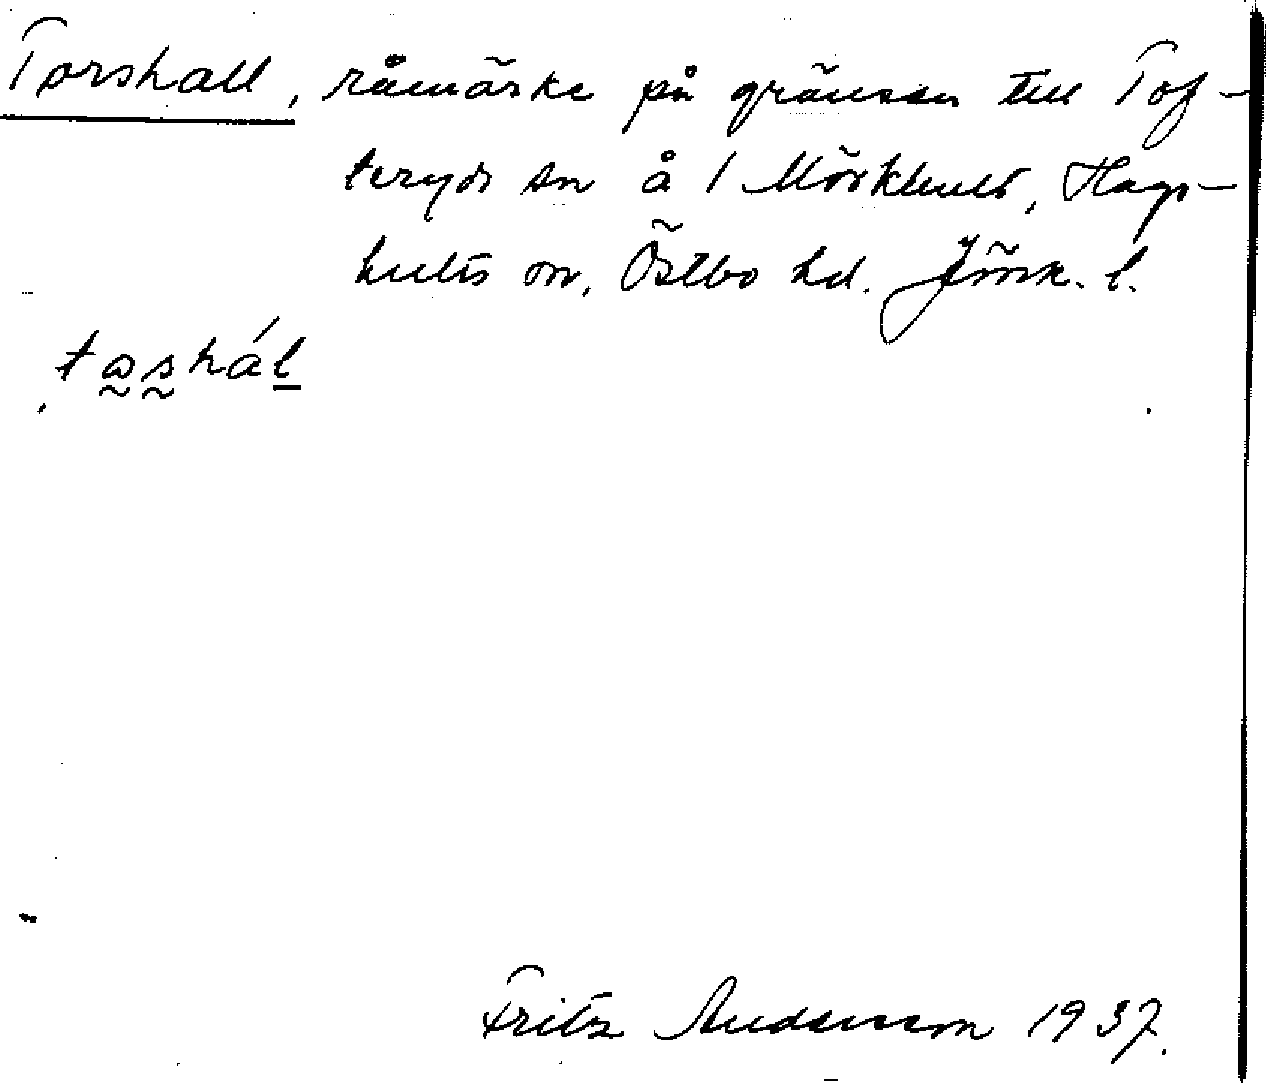 Torshall, råmärke på gränsen till Tof-
teryds sn å 1 Mörkhult, Hags-
hults sn, Östbo hd. Jönk. l.
tashál
Fritz Andersson 1937.